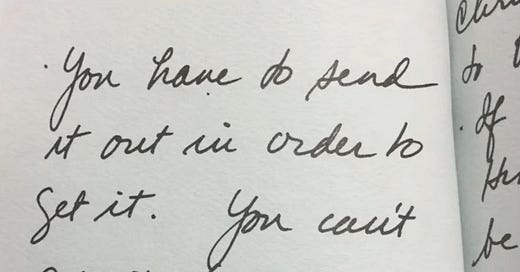 You have to send
it out in order to
get it. You can't
to
. If
be